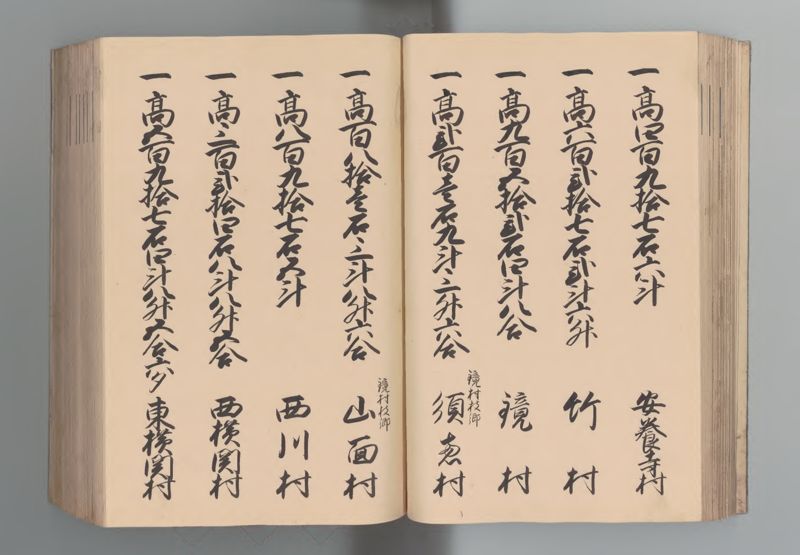 一高四百九拾七石六斗 安養寺村
一高六百弐拾七石弐斗六升 竹村
一高九百五拾弐石四斗八合 鏡村
鏡村枝郷
一高弐百壱石九斗三升六合 須恵村
鏡村枝郷
一高百八拾壱石三斗八升六合 山面村
一高八百九拾七石五斗 西川村
一高三百弐拾四石八斗八升五合 西横関村
一高五百九拾七石四斗八升五合六夕 東横関村